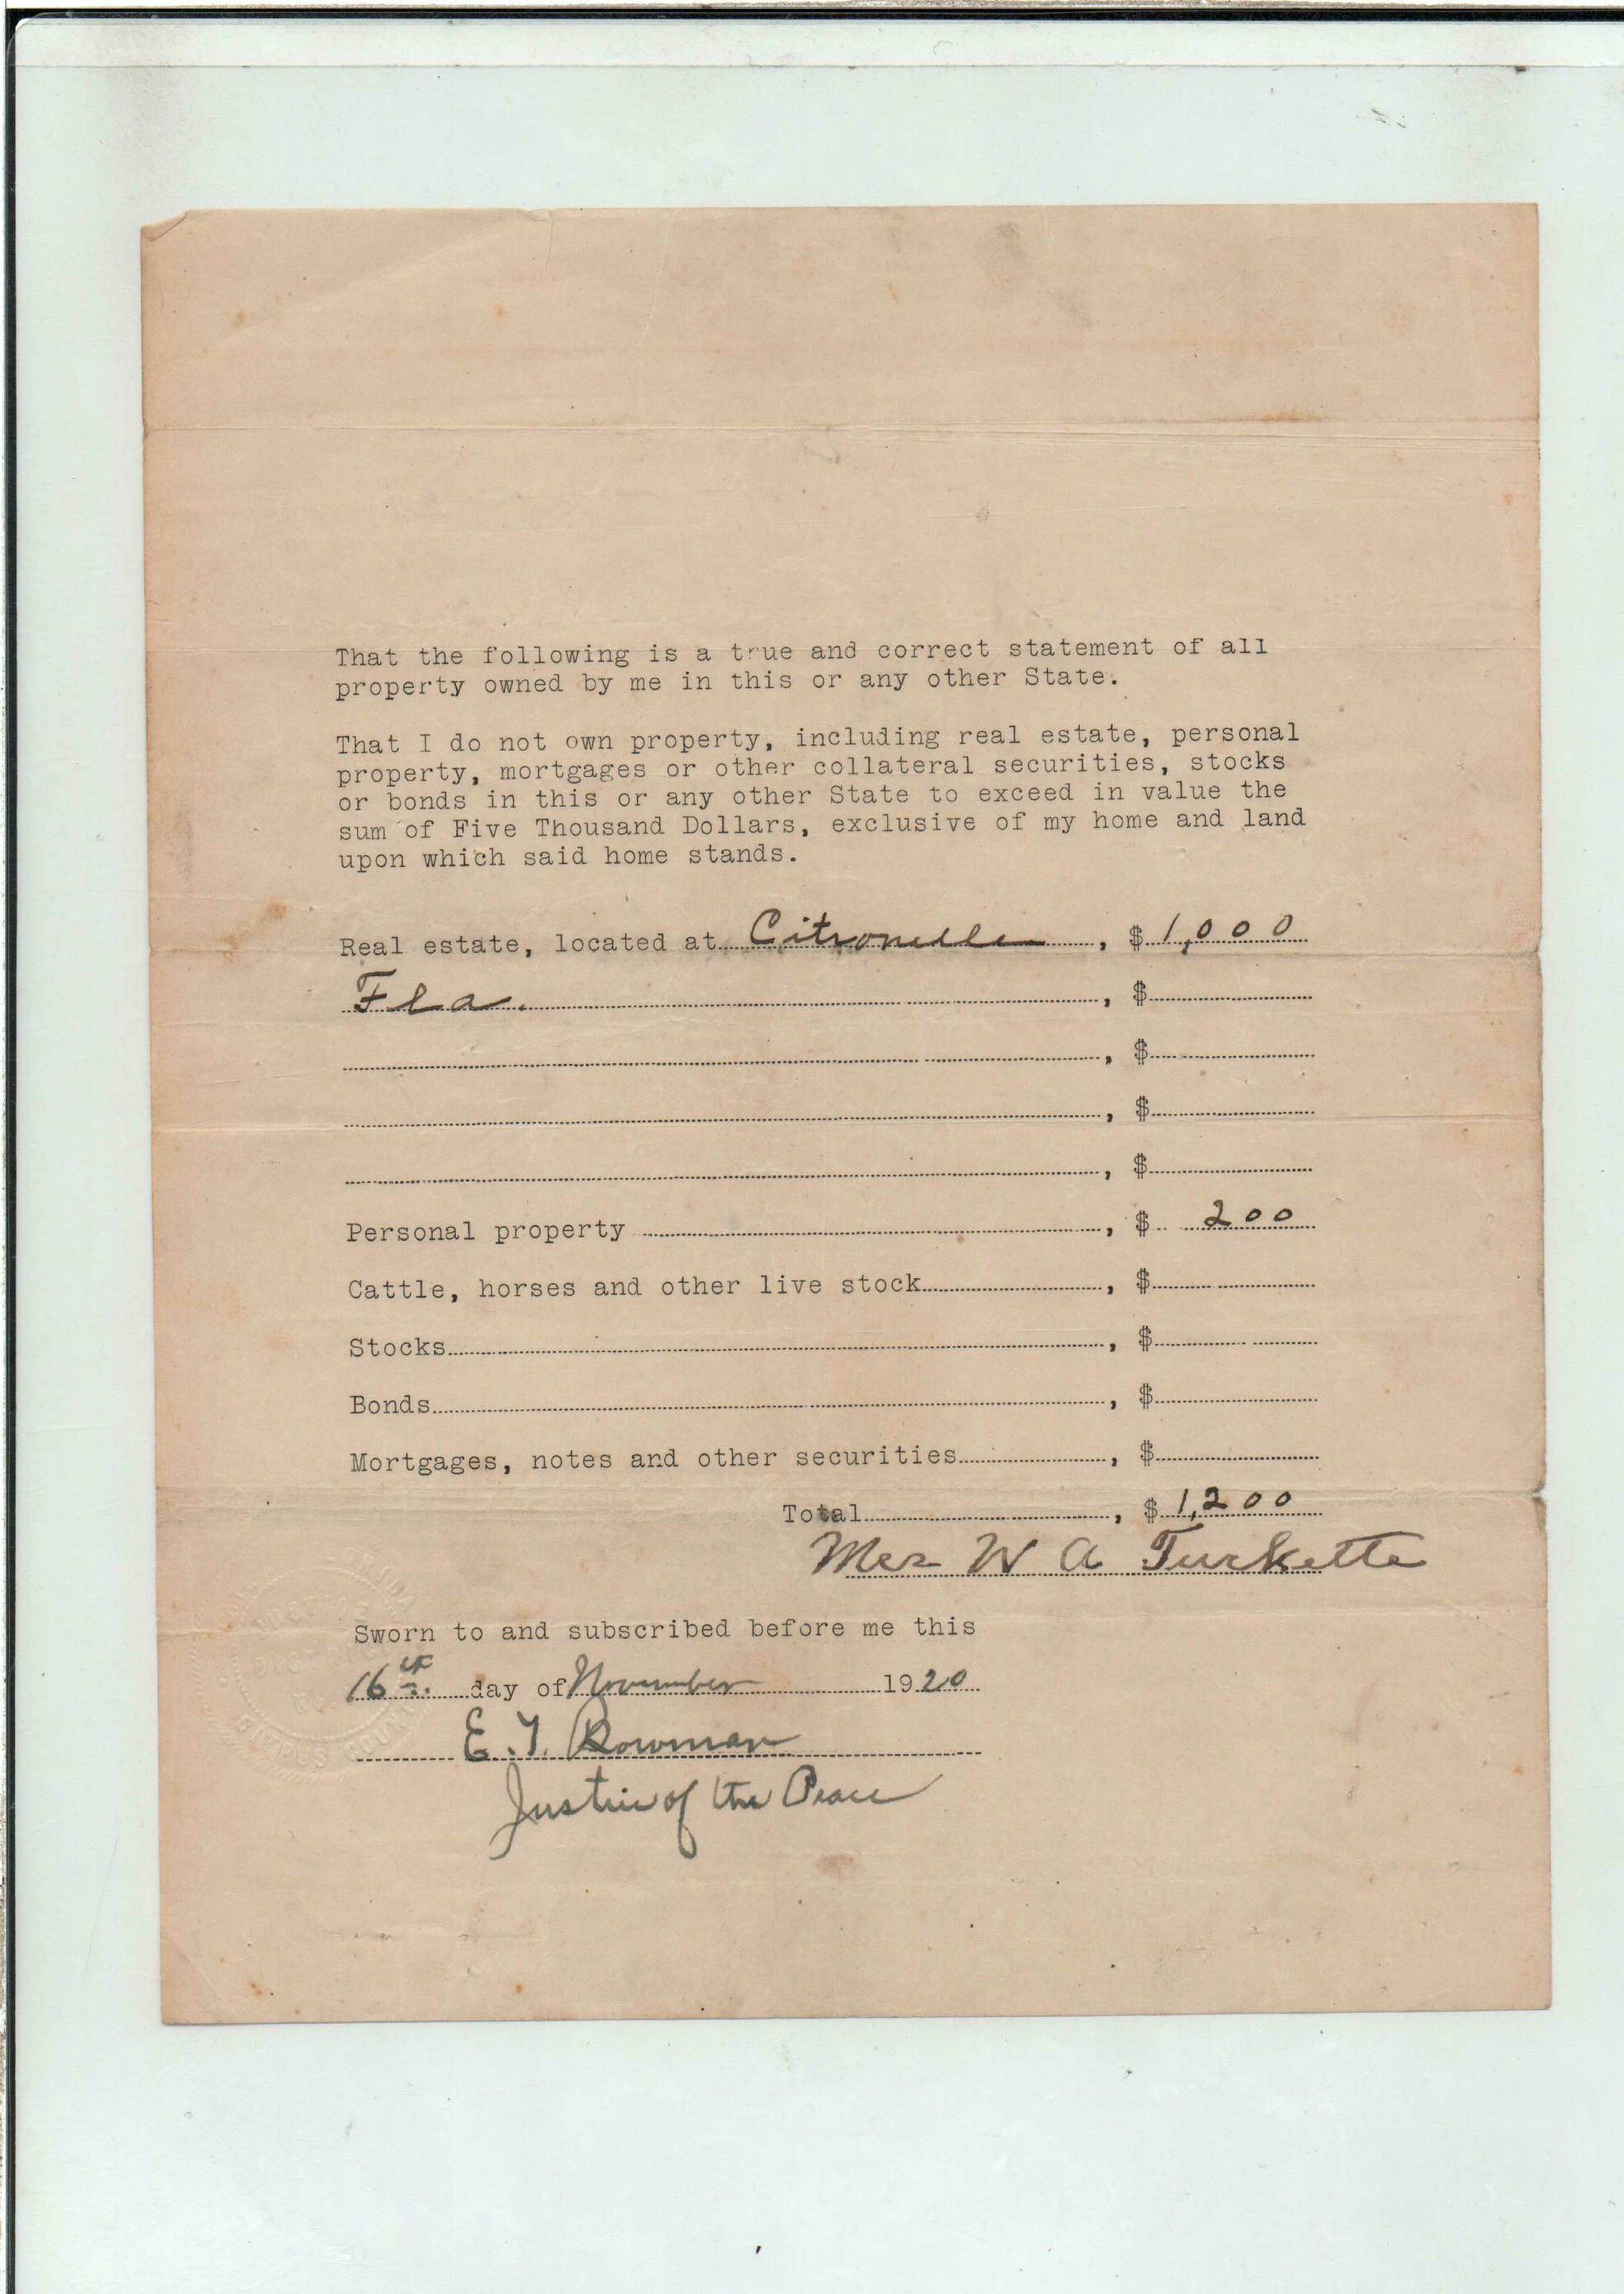 That the following is a true and correct statement of all
property owned by me in this or any other State.
That I do not own property, including real estate, personal
property, mortgages or other collateral securities, stocks
or bonds in this or any other State to exceed in value the
sum of Five Thousand Dollars, exclusive of my home and land
upon which said home stands.
Real estate, located at Citronelle, $ 1,000
Fla. , $
, $
, $
, $
Personal property , $ 200
Cattle, horses and other live stock , $
Stocks , $
Bonds , $
Mortgages, notes and other securities , $
Total , $ 1,200
Mrs W A Turkette
Sworn to and subscribed before me this
16th day of November 1920
E. T. Bowman
Justice of the Peace
CITRUS COUNTY